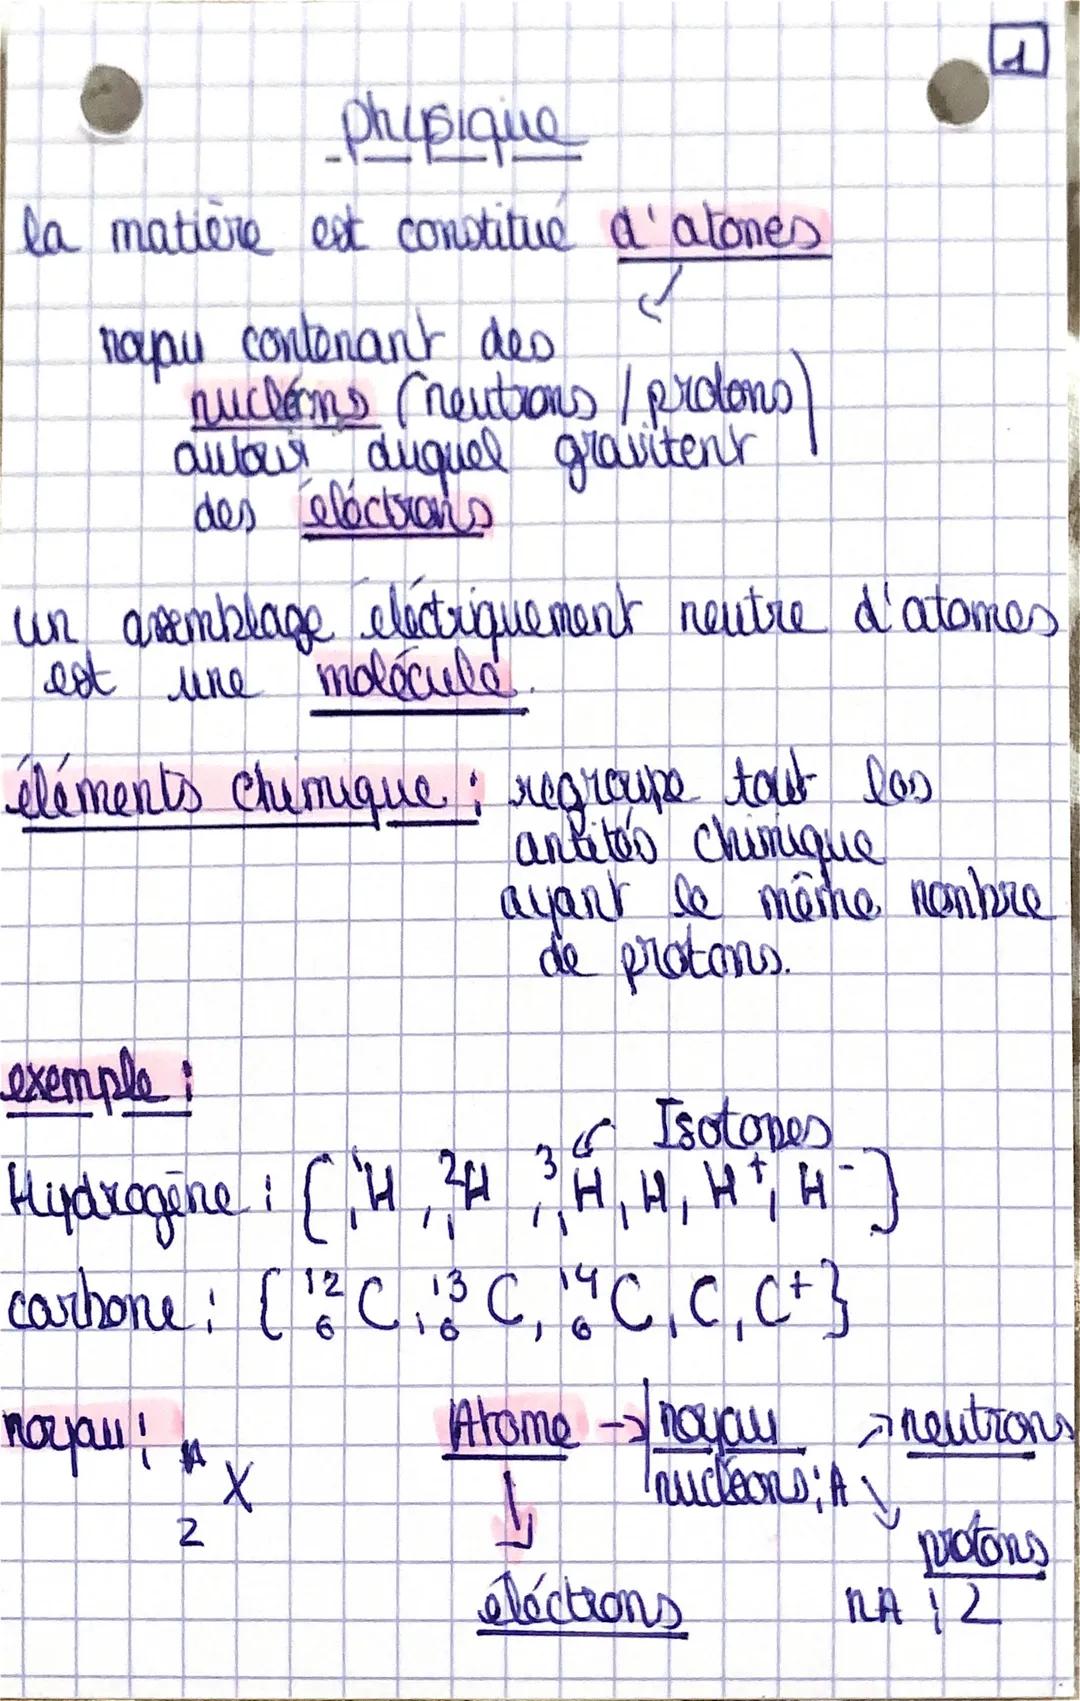 1
physique
la matière est constitué d'atomes
noyau contenant des
nucléons (neutrons / protons)
autour duquel gravitent
des éléctrons
un assemblage éléctriquement neutre d'atomes
est une molécule.
éléments chimique : regroupe tout les
antités chimique
ayant le même nombre
de protons.
exemple :
Isotopes
Hydrogène : { ¹₁H, ²₁H, ³₁H, H, H⁺, H⁻ }
carbone : { ¹²₆C, ¹³₆C, ¹⁴₆C, C, C⁺ }
noyau : A X Z
Atome → noyau ↗ neutrons
nucléons : A ↘
protons
éléctrons
nA : Z